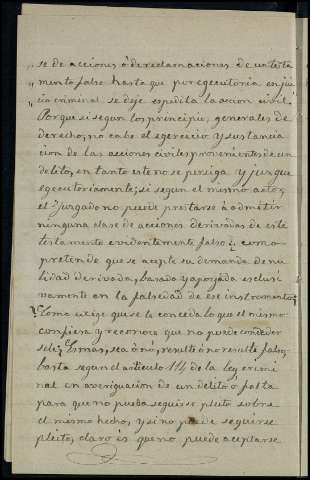 „ se de acciones ó de reclamaciones de un testa
„ mento falso hasta que por egecutoria en jui
„ cio criminal se deje expedita la accion civil.
Porque si segun los principios generales de
derecho, no cabe el egercicio y sustancia
cion de las acciones civiles provenientes de un
delito, en tanto este no se persiga y juzgue
egecutoriamente; si segun el mismo actor,
el Juzgado no puede prestarse á admitir
ninguna clase de acciones derivadas de este
testamento evidentemente falso ¿como
pretende que se acepte su demanda de nu
lidad derivada, basada y apoyada esclusi
vamente en la falsedad de ese instrumento?
¿Como exige que se le conceda lo que él mismo
confiesa y reconoce que no puede conceder
sele? Y mas, sea ó nó, resulte ó no resulte falso,
basta segun el articulo 114 de la ley crimi
nal en averiguacion de un delito ó falta
para que no pueda seguirse pleito sobre
el mismo hecho, y si no puede seguirse
pleito, claro es que no puede aceptarse